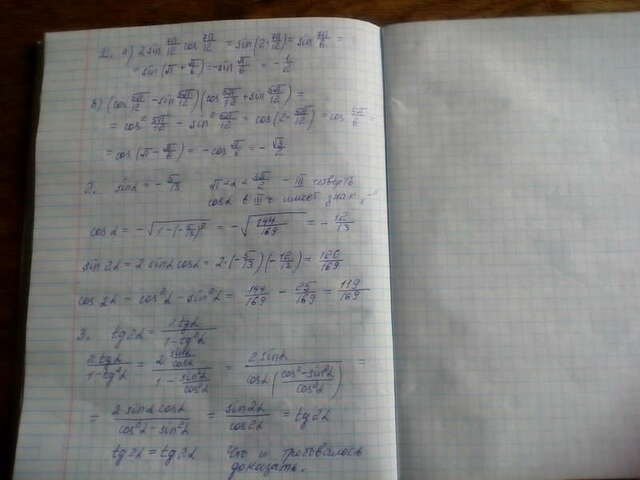 1. а) 2 sin 7π/12 cos 7π/12 = sin(2·7π/12) = sin 7π/6 =
= sin(π + π/6) = -sin π/6 = -1/2
б) (cos 5π/12 - sin 5π/12)(cos 5π/12 + sin 5π/12) =
= cos² 5π/12 - sin² 5π/12 = cos(2·5π/12) = cos 5π/6 =
= cos(π - π/6) = -cos π/6 = -√3/2
2. sinα = -5/13 π<α<3π/2 - III четверть
cosα в III ч имеет знак „-“
cosα = -√(1-(-5/13)²) = -√(144/169) = -12/13
sin2α = 2 sinα cosα = 2·(-5/13)(-12/13) = 120/169
cos2α = cos²α - sin²α = 144/169 - 25/169 = 119/169
3. tg2α = 2tgα/(1-tg²α)
2tgα/(1-tg²α) = (2 sinα/cosα)/(1 - sin²α/cos²α) = 2sinα/(cosα((cos²-sin²α)/cos²α)) =
= 2 sinα cosα/(cos²α - sin²α) = sin2α/cos2α = tg2α
tg2α = tg2α Что и требовалось
доказать.